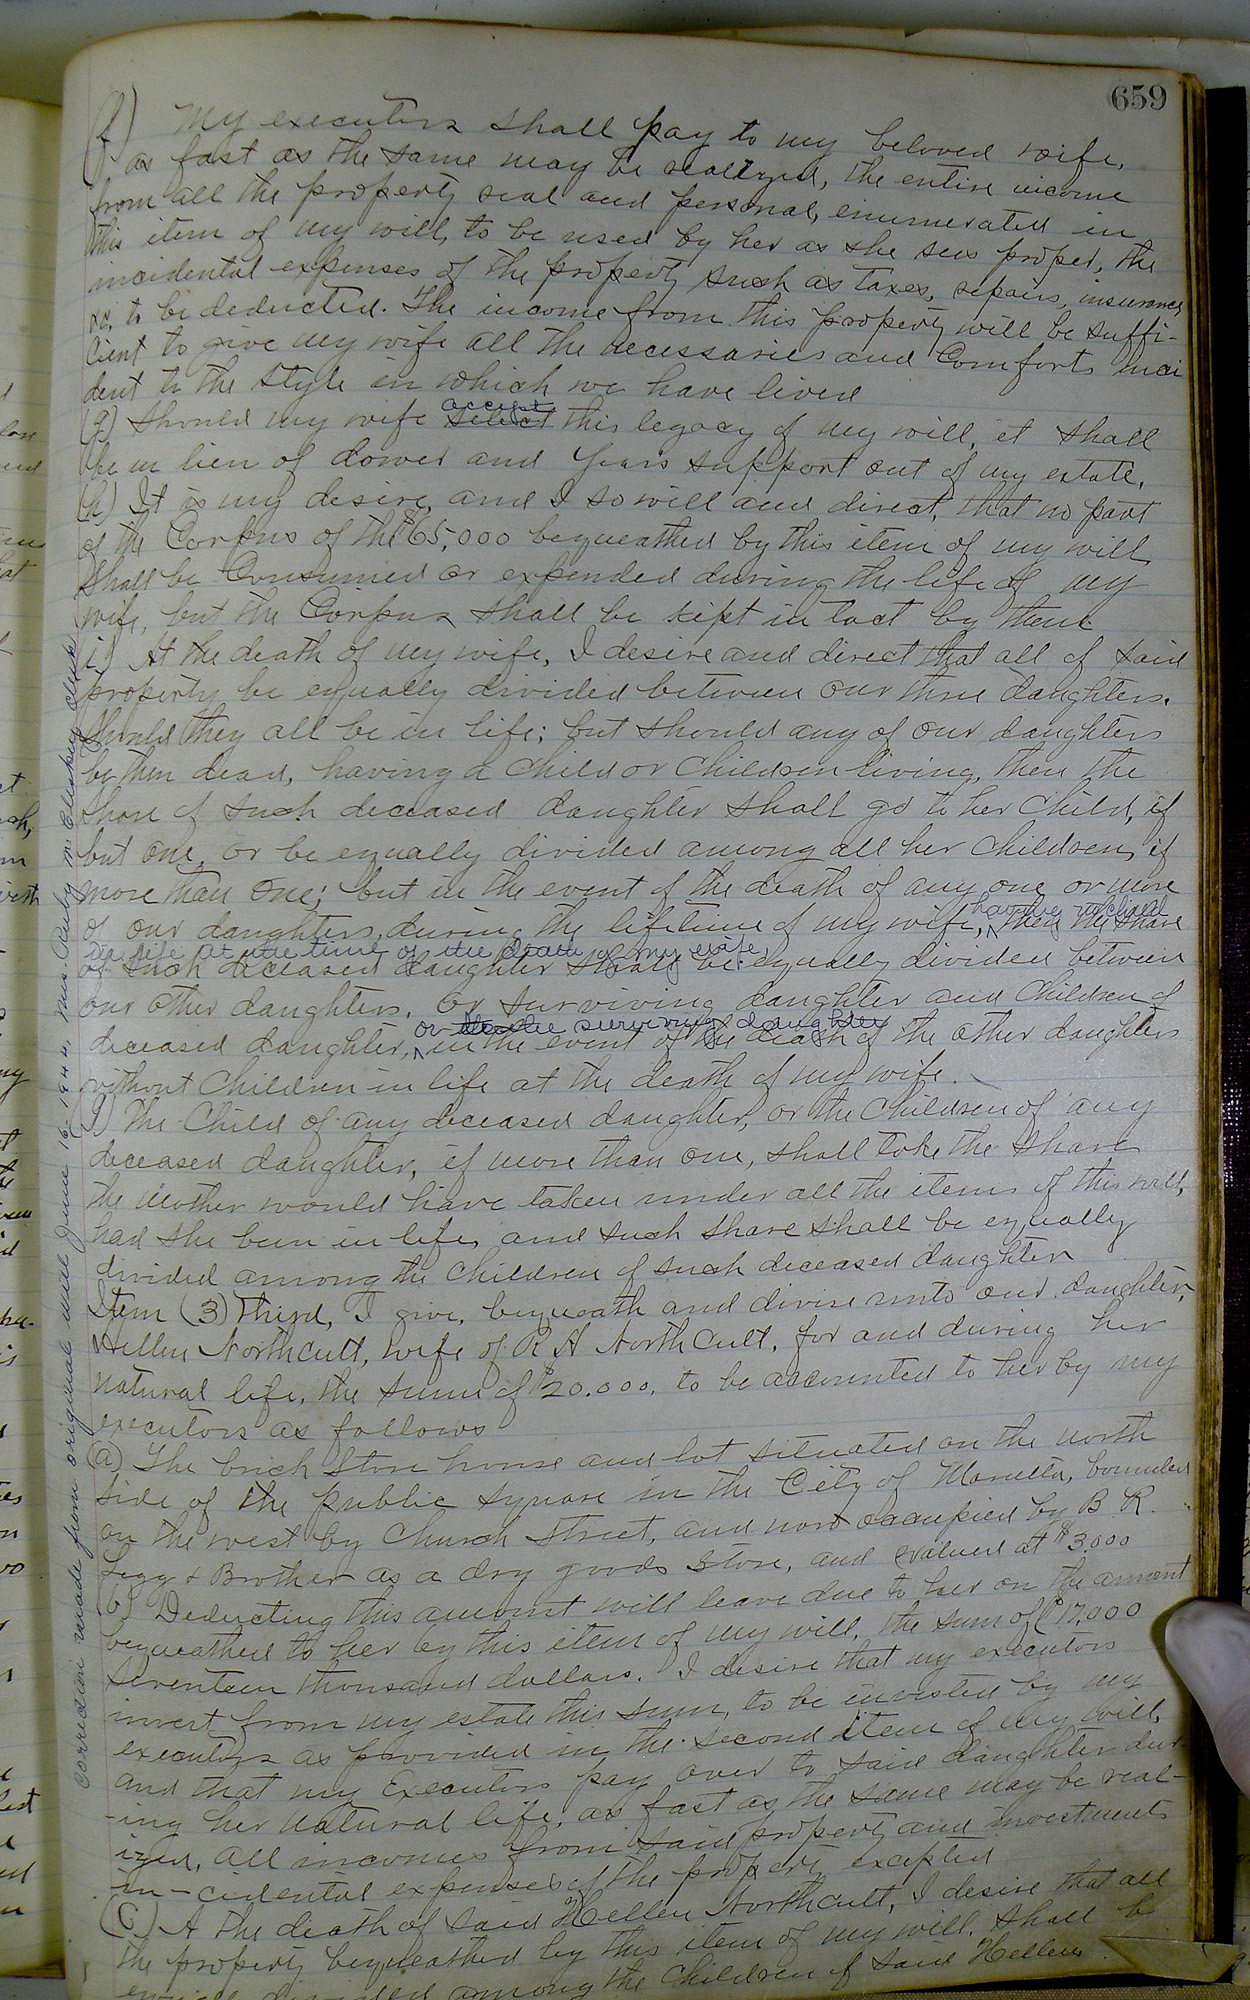 659
(f) My executors shall pay to my beloved wife,
as fast as the same may be realized, the entire income
from all the property real and personal, enumerated in
this item of my will, to be used by her as she sees proper, the
incidental expenses of the property such as taxes, repairs, insurance,
&c, to be deducted. The income from this property will be suffi-
cient to give my wife all the necessaries and Comforts inci
dent to the style in which we have lived
accept
(g) Should my wife select this legacy of my will, it shall
be in lieu of dower and years support out of my estate.
(h) It is my desire, and I so will and direct, that no part
of the Corpus of the $65,000 bequeathed by this item of my will
shall be Consumed or expended during the life of my
wife, but the Corpus shall be kept in tact by them
(i) At the death of my wife, I desire and direct that all of said
property be equally divided between our three daughters.
Should they all be in life; but should any of our daughters
be then dead, having a child or children living, then the
share of such deceased daughter shall go to her child, if
but one, or be equally divided among all her children, if
more than one; but in the event of the death of any one or more
having no child
of our daughters, during the lifetime of my wife, then the share
in life at the time of the death of my wife,
of such deceased daughter shall be equally divided between
our other daughters, or surviving daughter and children of
or to the surviving daughter
deceased daughter, in the event of the death of the other daughters
without Children in life at the death of my wife.
(J) The Child of any deceased daughter, or the Children of any
deceased daughter, if more than one, shall take the share
the mother would have taken under all the items of this will,
had she been in life, and such share shall be equally
divided among the children of such deceased daughter
Item (3) Third, I give, bequeath and divise unto our daughter,
Hellen Northcutt, wife of R H Northcutt, for and during her
natural life, the sum of $20.000, to be accounted to her by my
executors as follows
(a) The brick Store house and lot situated on the north
side of the public square in the City of Marietta, bounded
on the west by Church Street, and now occupied by B. R.
Legg & Brother as a dry goods store, and valued at $3.000
(b) Deducting this amount will leave due to her on the amount
bequeathed to her by this item of my will, the sum of $17,000
Seventeen thousand dollars. I desire that my executors
invest from my estate this sum, to be invested by my
executors as provided in the second item of my will,
and that my Executors pay over to said daughter dur-
-ing her natural life, as fast as the same may be real-
ized, all incomes from said property and investments
in-cidental expenses of the property excepted
(C) At the death of said Hellen Northcutt, I desire that all
the property bequeathed by this item of my will, shall be
divided among the Children of Said Hellen
correction made from original will June 16-1944, Mrs. Ruby McCleskey, clerk